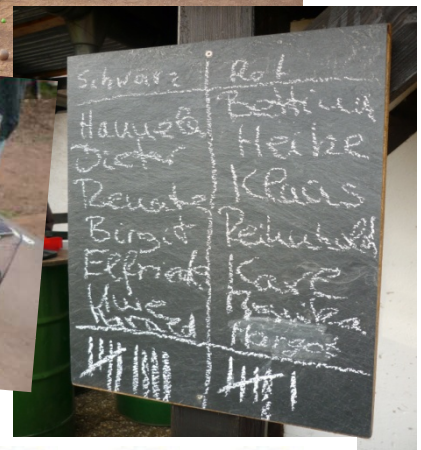 Schwarz Rot
Hannelo Bettina
Dieter Heike
Renate Klaus
Birgit Reinhold
Elfriede Karl
Uwe Monika
Harald Margot